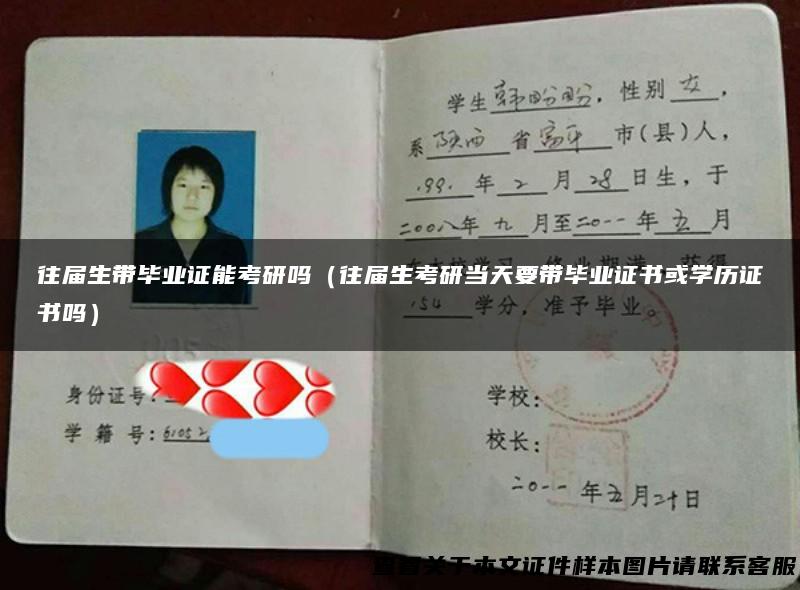 学生韩盼盼，性别女，
系陕西省富平市(县)人，
1991年2月28日生，于
二00八年九月至二0一一年五月
往届生带毕业证能考研吗（往届生考研当天要带毕业证书或学历证
书吗）
154学分，准予毕业。
身份证号：
学籍号：61052
学校：
校长：
二0一一年五月二十日
查看关于本文证件样本图片请联系客服